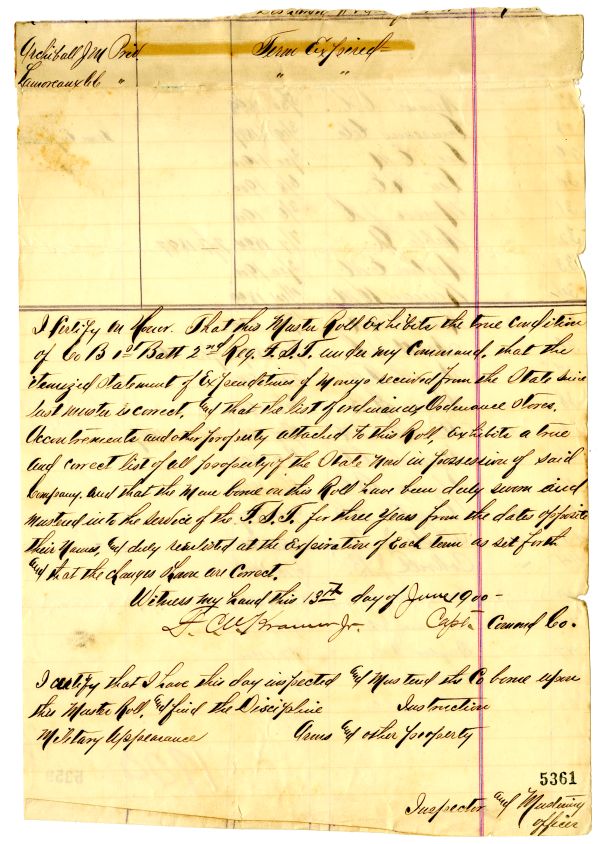 Archiball J M Priv Term Expired
Lamoreaux Cb " " "
I Certify on Honor. That this Muster Roll exhibits the true Condition
of Co B 1st Batt 2nd Reg. F.S.T. under my Command, that the
itemized Statement of Expenditures of Moneys received from the State since
last muster is correct, and that the list of ordinances Ordenance Stores,
Accoutrements and other property attached to this Roll exhibits a true
and correct list of all property of the State now in possession of said
Company. and that the Men borne on this Roll have been duly sworn and
mustered into the service of the F.S.T. for three years from the dates opposite
their Names, and duly reenlisted at the Expiration of Each term as set forth
and that the changes shown are Correct.
Witness my hand this 13th day of June 1900-
F. C. W. Kramer Jr. Capt Comnd Co.
I certify that I have this day inspected and Musterd the Co borne upon
this Muster Roll, and find the Discipline Instruction
Military Appearance Arms and other property
5361
Inspector and Mustering
officer